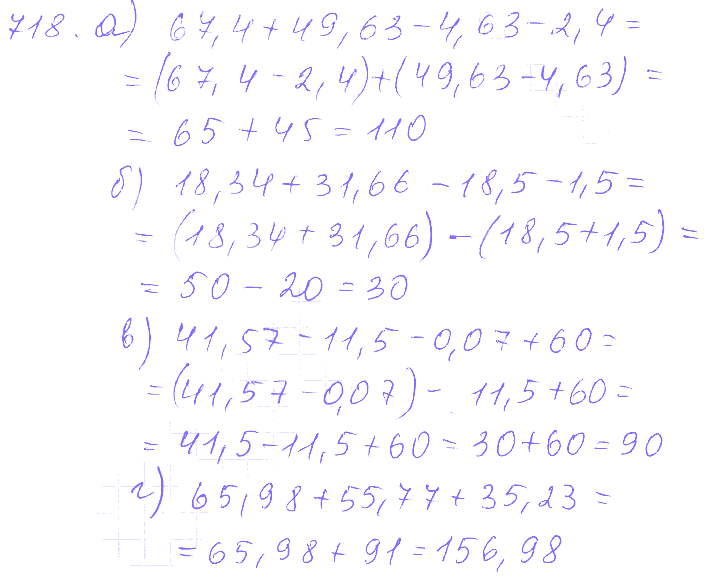 718. а) 67,4+49,63-4,63-2,4=
=(67,4-2,4)+(49,63-4,63)=
= 65+45=110
б) 18,34+31,66-18,5-1,5=
=(18,34+31,66)-(18,5+1,5)=
= 50-20=30
в) 41,57-11,5-0,07+60=
=(41,57-0,07)- 11,5+60=
= 41,5-11,5+60=30+60=90
г) 65,98+55,77+35,23=
=65,98+91=156,98